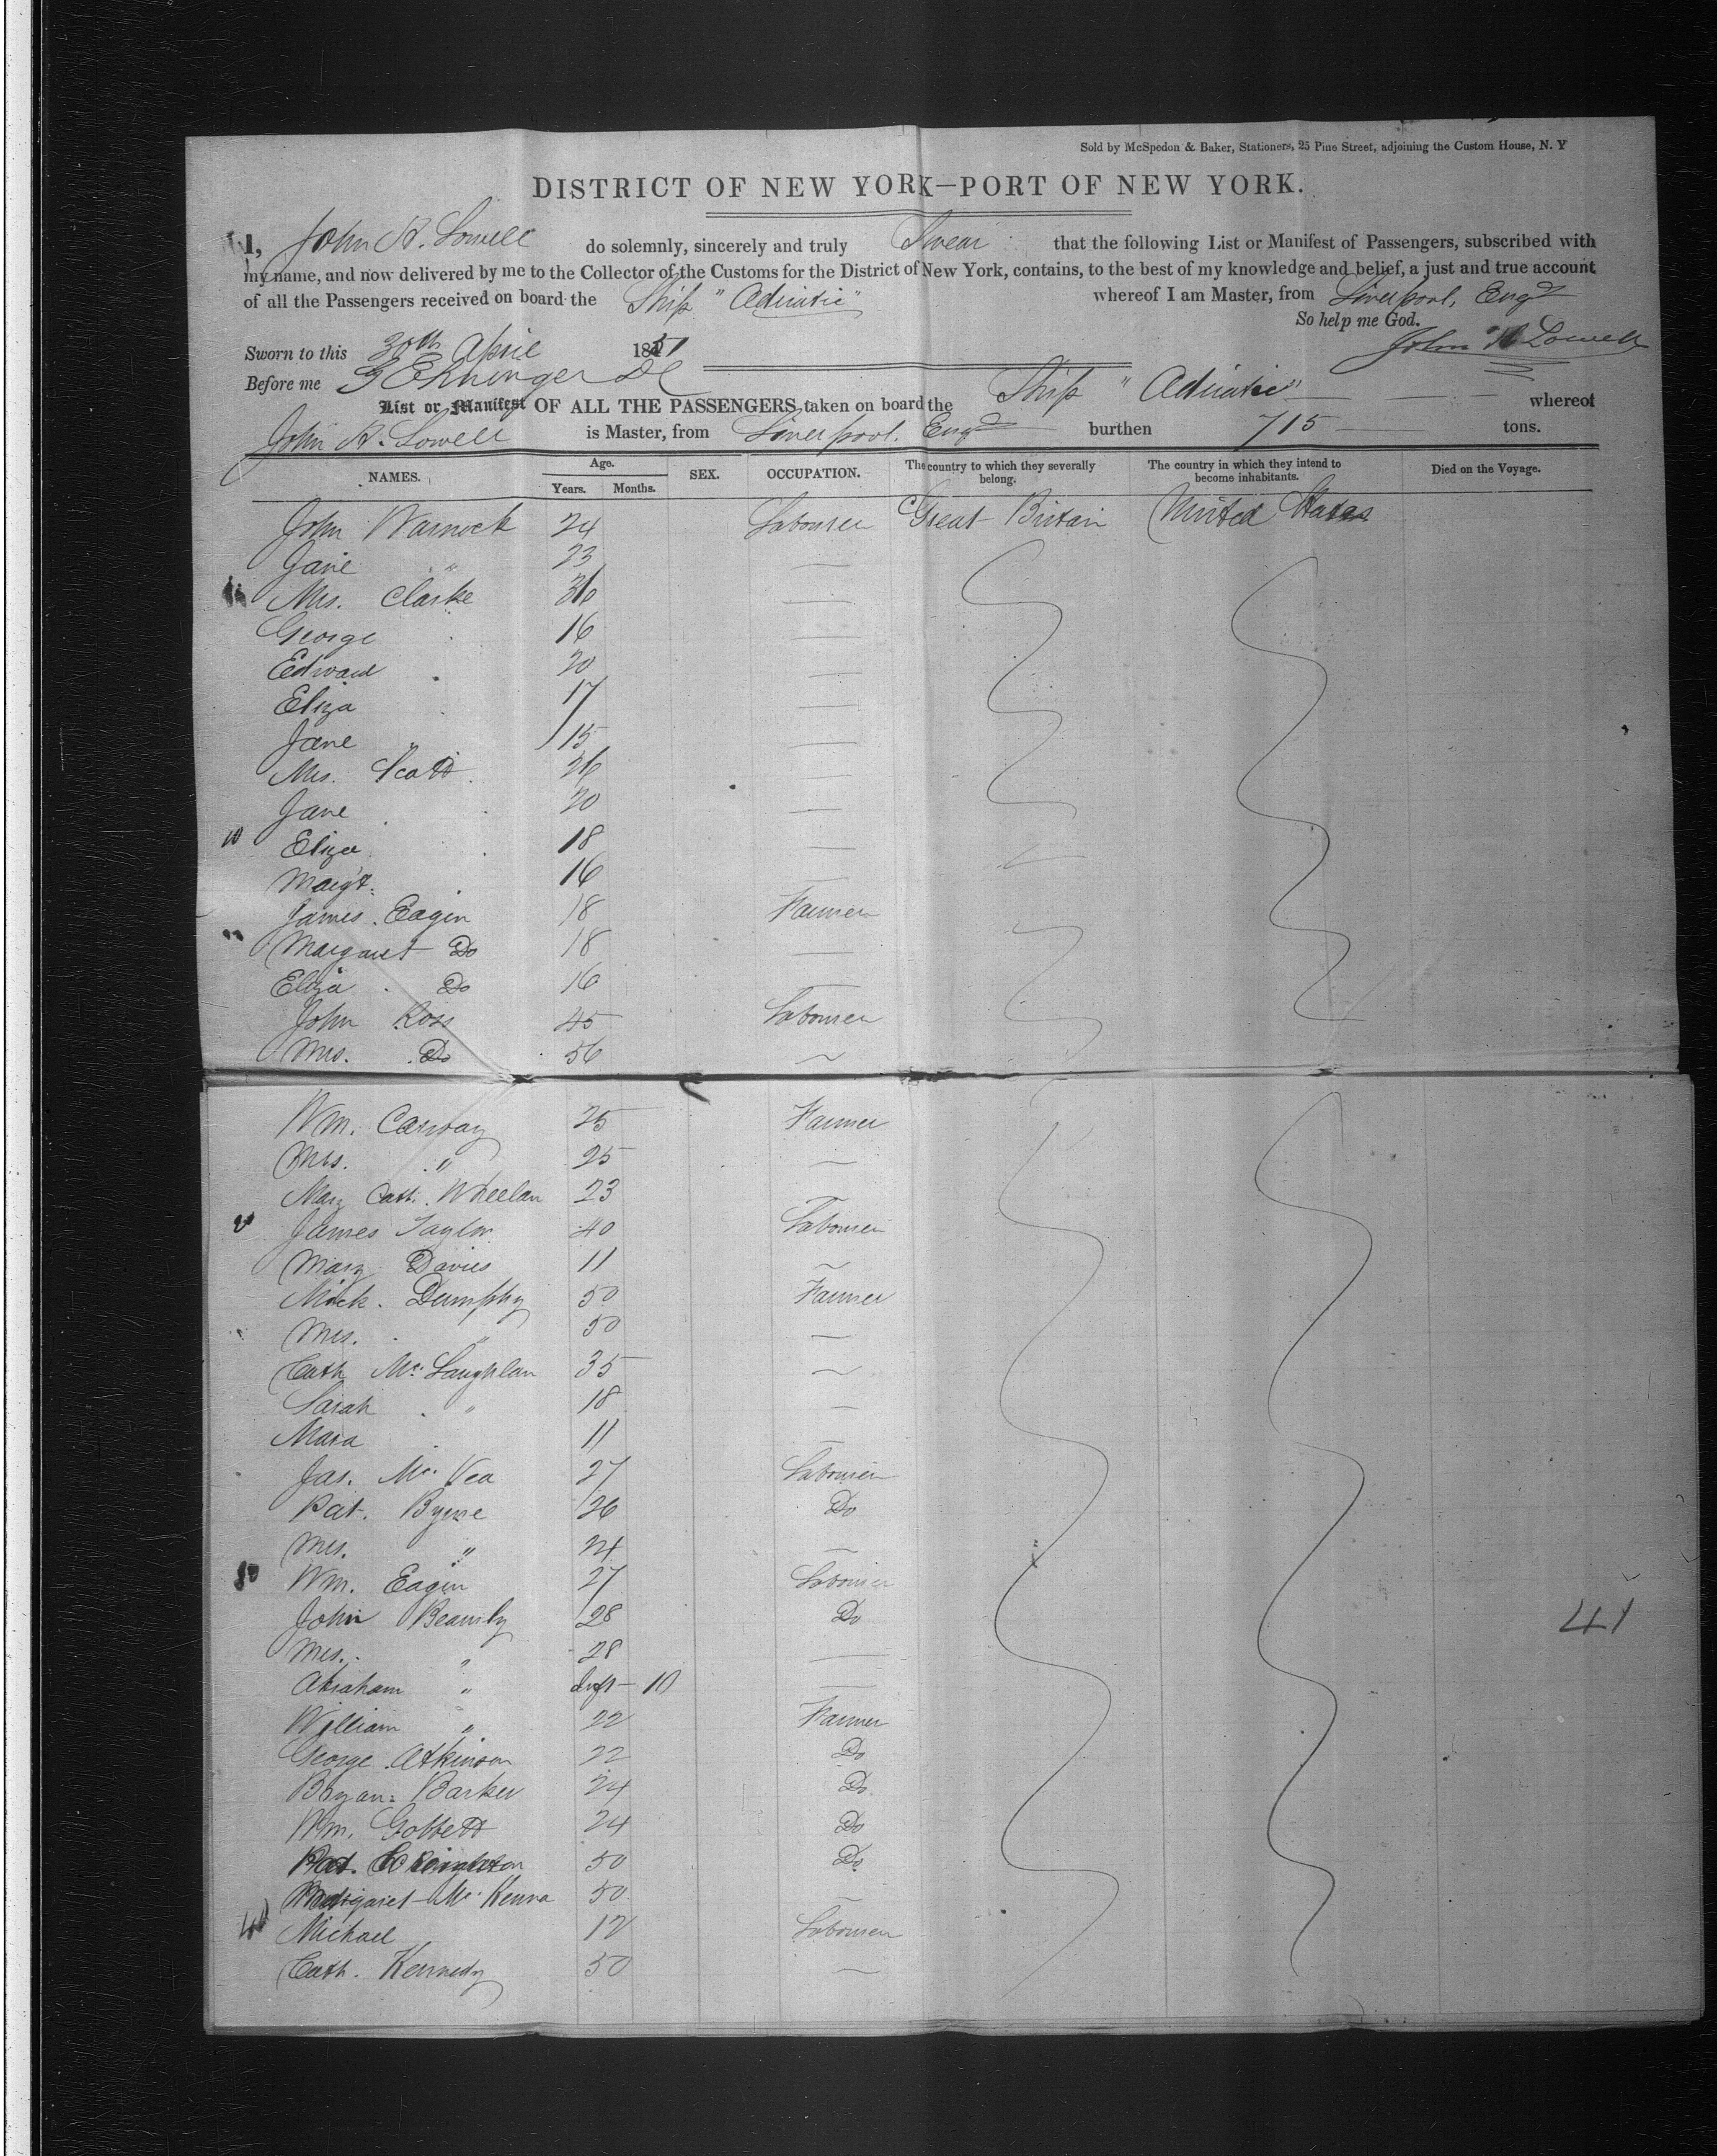 Sold by McSpedon & Baker, Stationers, 25 Pine Street, adjoining the Custom House, N. Y
DISTRICT OF NEW YORK—PORT OF NEW YORK.
I, John A. Lowell do solemnly, sincerely and truly Swear that the following List or Manifest of Passengers, subscribed with
my name, and now delivered by me to the Collector of the Customs for the District of New York, contains, to the best of my knowledge and belief, a just and true account
of all the Passengers received on board the Ship "Adriatic" whereof I am Master, from Liverpool, Engd
So help me God.
Sworn to this 30th April 1851 John A Lowell
Before me
List or Manifest OF ALL THE PASSENGERS taken on board the Ship "Adriatic" whereof
John A. Lowell is Master, from Liverpool. Engd burthen 715 tons.
NAMES. Age. Years. Months. SEX. OCCUPATION. The country to which they severally belong. The country in which they intend to become inhabitants. Died on the Voyage.
John Warnock 24 Labourer Great Britain United States
Jane " 23
Mrs. Clarke 36
George 16
Edward 20
Eliza 17
Jane " 15
Mrs. Scott 26
Jane 20
10 Eliza 18
Margt. 16
James Eagin 18 Farmer
Margaret Do 18
Eliza Do 16
John Ross 45 Labourer
Mrs. Do 56
Wm. Carway 25 Farmer
Mrs. " 25
Mary Cath. Wheelan 23
20 James Taylor 40 Labourer
Mary Davies 11
Mick. Dumphy 50 Farmer
Mrs. " 50
Cath Mc. Laughlan 35
Sarah " 18
Mara 11
Jas. Mc. Vea 27 Labourer
Pat. Byrne 26 Do
Mrs. " 24
30 Wm. Eagin 27 Labourer
John Beamly 28 Do
Mrs. " 28
Abraham " Inft - 10
William " 22 Farmer
George Atkinson 22 Do
Bryan Barker 24 Do
Wm. Gobbett 24 Do
Pat. 50 Do
Margaret Mc. Kenna 50
40 Michael 12 Labourer
Cath. Kennedy 50
41